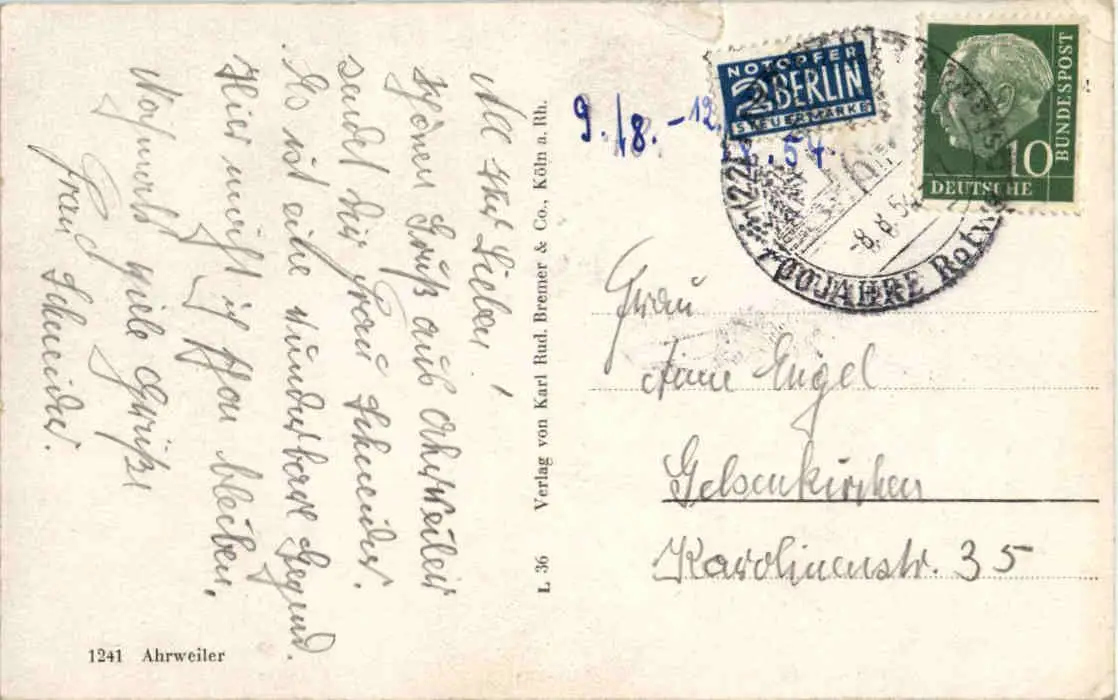 All ihr Lieben!
Schönen Gruß aus Ahrweiler
sendet dir Frau Schneider.
Es ist eine wunderbare Gegend.
Hier möcht ich schon bleiben.
Nochmals viele Grüße
Frau Schneider.
1241 Ahrweiler
L 36 Verlag von Karl Rud. Bremer & Co., Köln a. Rh.
9./8. - 12. 8. 54.
NOTOPFER
2 BERLIN
STEUERMARKE
DEUTSCHE
BUNDESPOST
10
-8.8.54
700 JAHRE Rotw
Frau
Änne Engel
Gelsenkirchen
Karolinenstr. 35